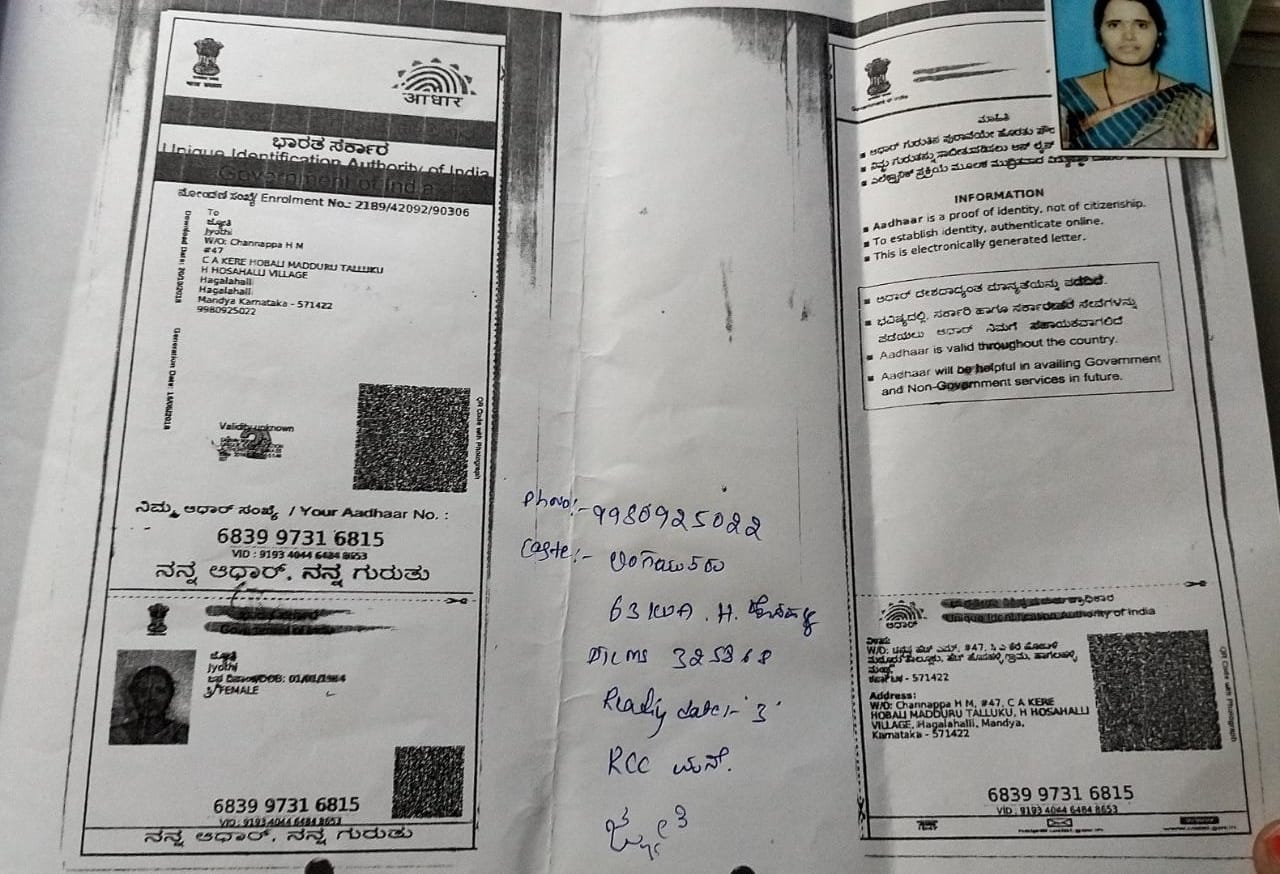 आधार
ಭಾರತ ಸರ್ಕಾರ
Unique Identification Authority of India
Government of India
ನೋಂದಣಿ ಸಂಖ್ಯೆ/ Enrolment No.: 2189/42092/90306
To
ಜ್ಯೋತಿ
Jyothi
W/O: Channappa H M
#47
C A KERE HOBALI MADDURU TALLUKU
H HOSAHALLI VILLAGE
Hagalahalli
Hagalahalli
Mandya Karnataka - 571422
9980925022
Validity unknown
QR Code with Photograph
ನಿಮ್ಮ ಆಧಾರ್ ಸಂಖ್ಯೆ / Your Aadhaar No. :
6839 9731 6815
VID : 9193 4044 6484 8653
ನನ್ನ ಆಧಾರ್, ನನ್ನ ಗುರುತು
ಜ್ಯೋತಿ
Jyothi
/ FEMALE
6839 9731 6815
VID : 9193 4044 6484 8653
ನನ್ನ ಆಧಾರ್, ನನ್ನ ಗುರುತು
9980925022
Caste:-
63 KVA . H.
325368
date:- '3'
RCC
ಜ್ಯೋತಿ
Government of India
ಮಾಹಿತಿ
ಆಧಾರ್ ಗುರುತಿನ ಪುರಾವೆಯೇ ಹೊರತು
INFORMATION
Aadhaar is a proof of identity, not of citizenship.
To establish identity, authenticate online.
This is electronically generated letter.
ಆಧಾರ್ ದೇಶದಾದ್ಯಂತ ಮಾನ್ಯತೆಯನ್ನು ಪಡೆದಿದೆ.
ಭವಿಷ್ಯದಲ್ಲಿ, ಸರ್ಕಾರಿ ಹಾಗೂ ಸರ್ಕಾರೇತರ ಸೇವೆಗಳನ್ನು
ಪಡೆಯಲು ಆಧಾರ್ ನಿಮಗೆ ಸಹಾಯಕವಾಗಲಿದೆ
Aadhaar is valid throughout the country.
Aadhaar will be helpful in availing Government
and Non-Government services in future.
Unique Identification Authority of India
ಆಧಾರ್
- 571422
Address:
W/O: Channappa H M, #47, C A KERE
HOBALI MADDURU TALLUKU, H HOSAHALLI
VILLAGE, Hagalahalli, Mandya,
Karnataka - 571422
QR Code with Photograph
6839 9731 6815
VID : 9193 4044 6484 8653